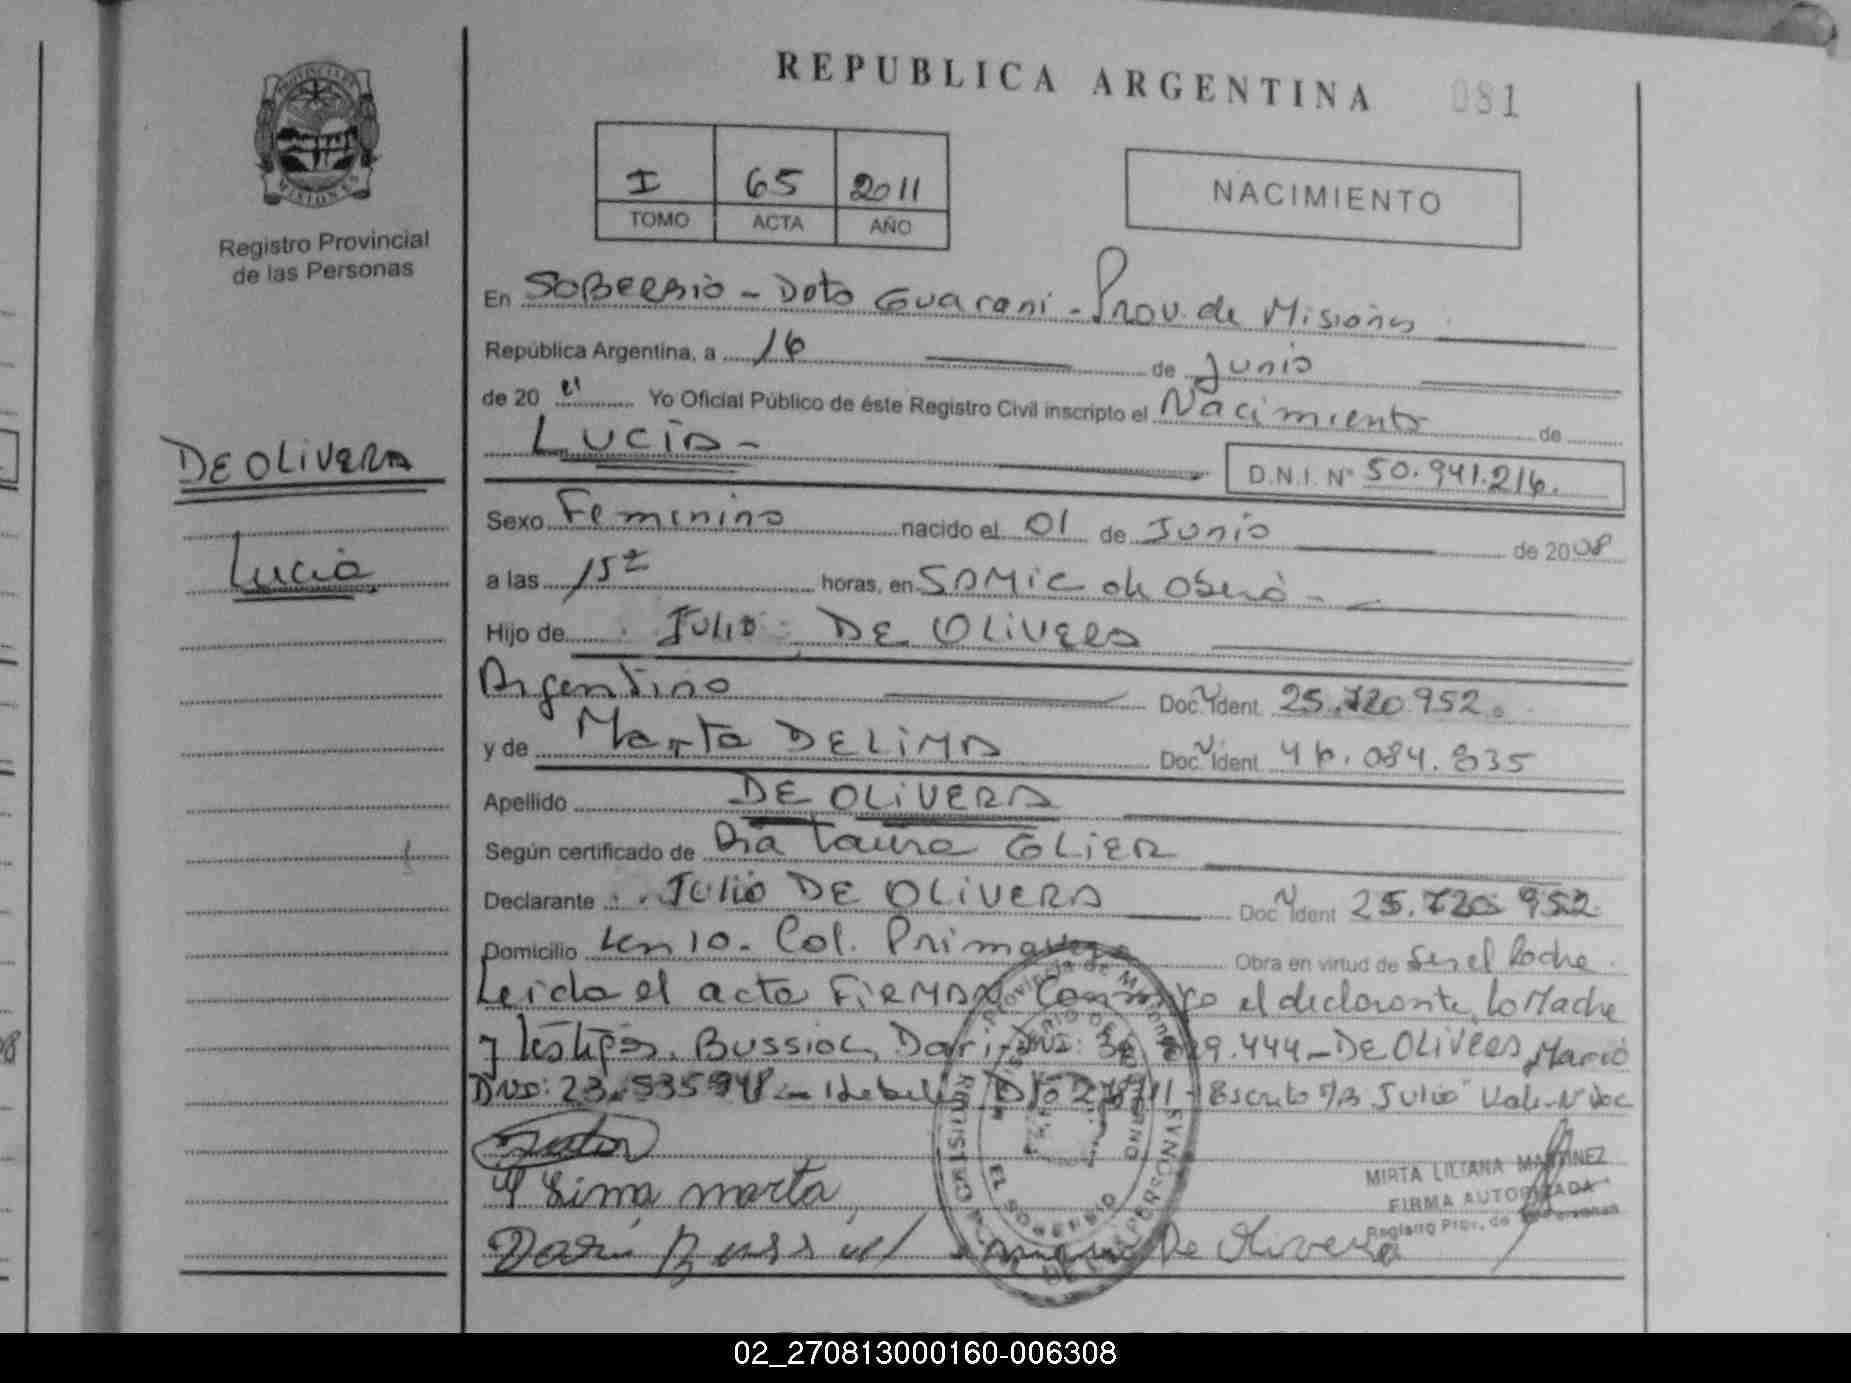 REPUBLICA ARGENTINA 081
PROVINCIA DE
MISIONES
Registro Provincial
de las Personas
I 65 2011
TOMO ACTA AÑO
NACIMIENTO
En SOBERBIO - Dpto Guarani - Prov. de Misiones
República Argentina, a 16 de Junio
de 20 Yo Oficial Público de éste Registro Civil inscripto el Nacimiento de
LUCIA -
D.N.I. Nº 50.941.216.
DE OLIVERA
Lucia
Sexo Femenino nacido el 01 de Junio de 2008
a las 15 horas, en SAMIC de Oberá -
Hijo de Julio DE OLIVERA
Argentino Doc. Ident. 25.720.952.
y de Marta DELIMA Doc. Ident. 46.084.835
Apellido DE OLIVERA
Según certificado de Dra Laura GLIER
Declarante JULIO DE OLIVERA Doc. Ident 25.720.952.
Domicilio km 10. Col. Primavera Obra en virtud de Ser el Padre.
Leida el acta FIRMAN Conmigo el declarante, la Madre
y testigos. Bussiol, Dari DNI: 444 - DE OLIVERA, Mario
DNI: 23.535.948 - Escrito S/B "Julio" Vale.
Lima marta
Dari De Olivera
MIRTA LILIANA MARTINEZ
FIRMA AUTORIZADA
Registro Prov. de las Personas
EL SOBERBIO
02_270813000160-006308